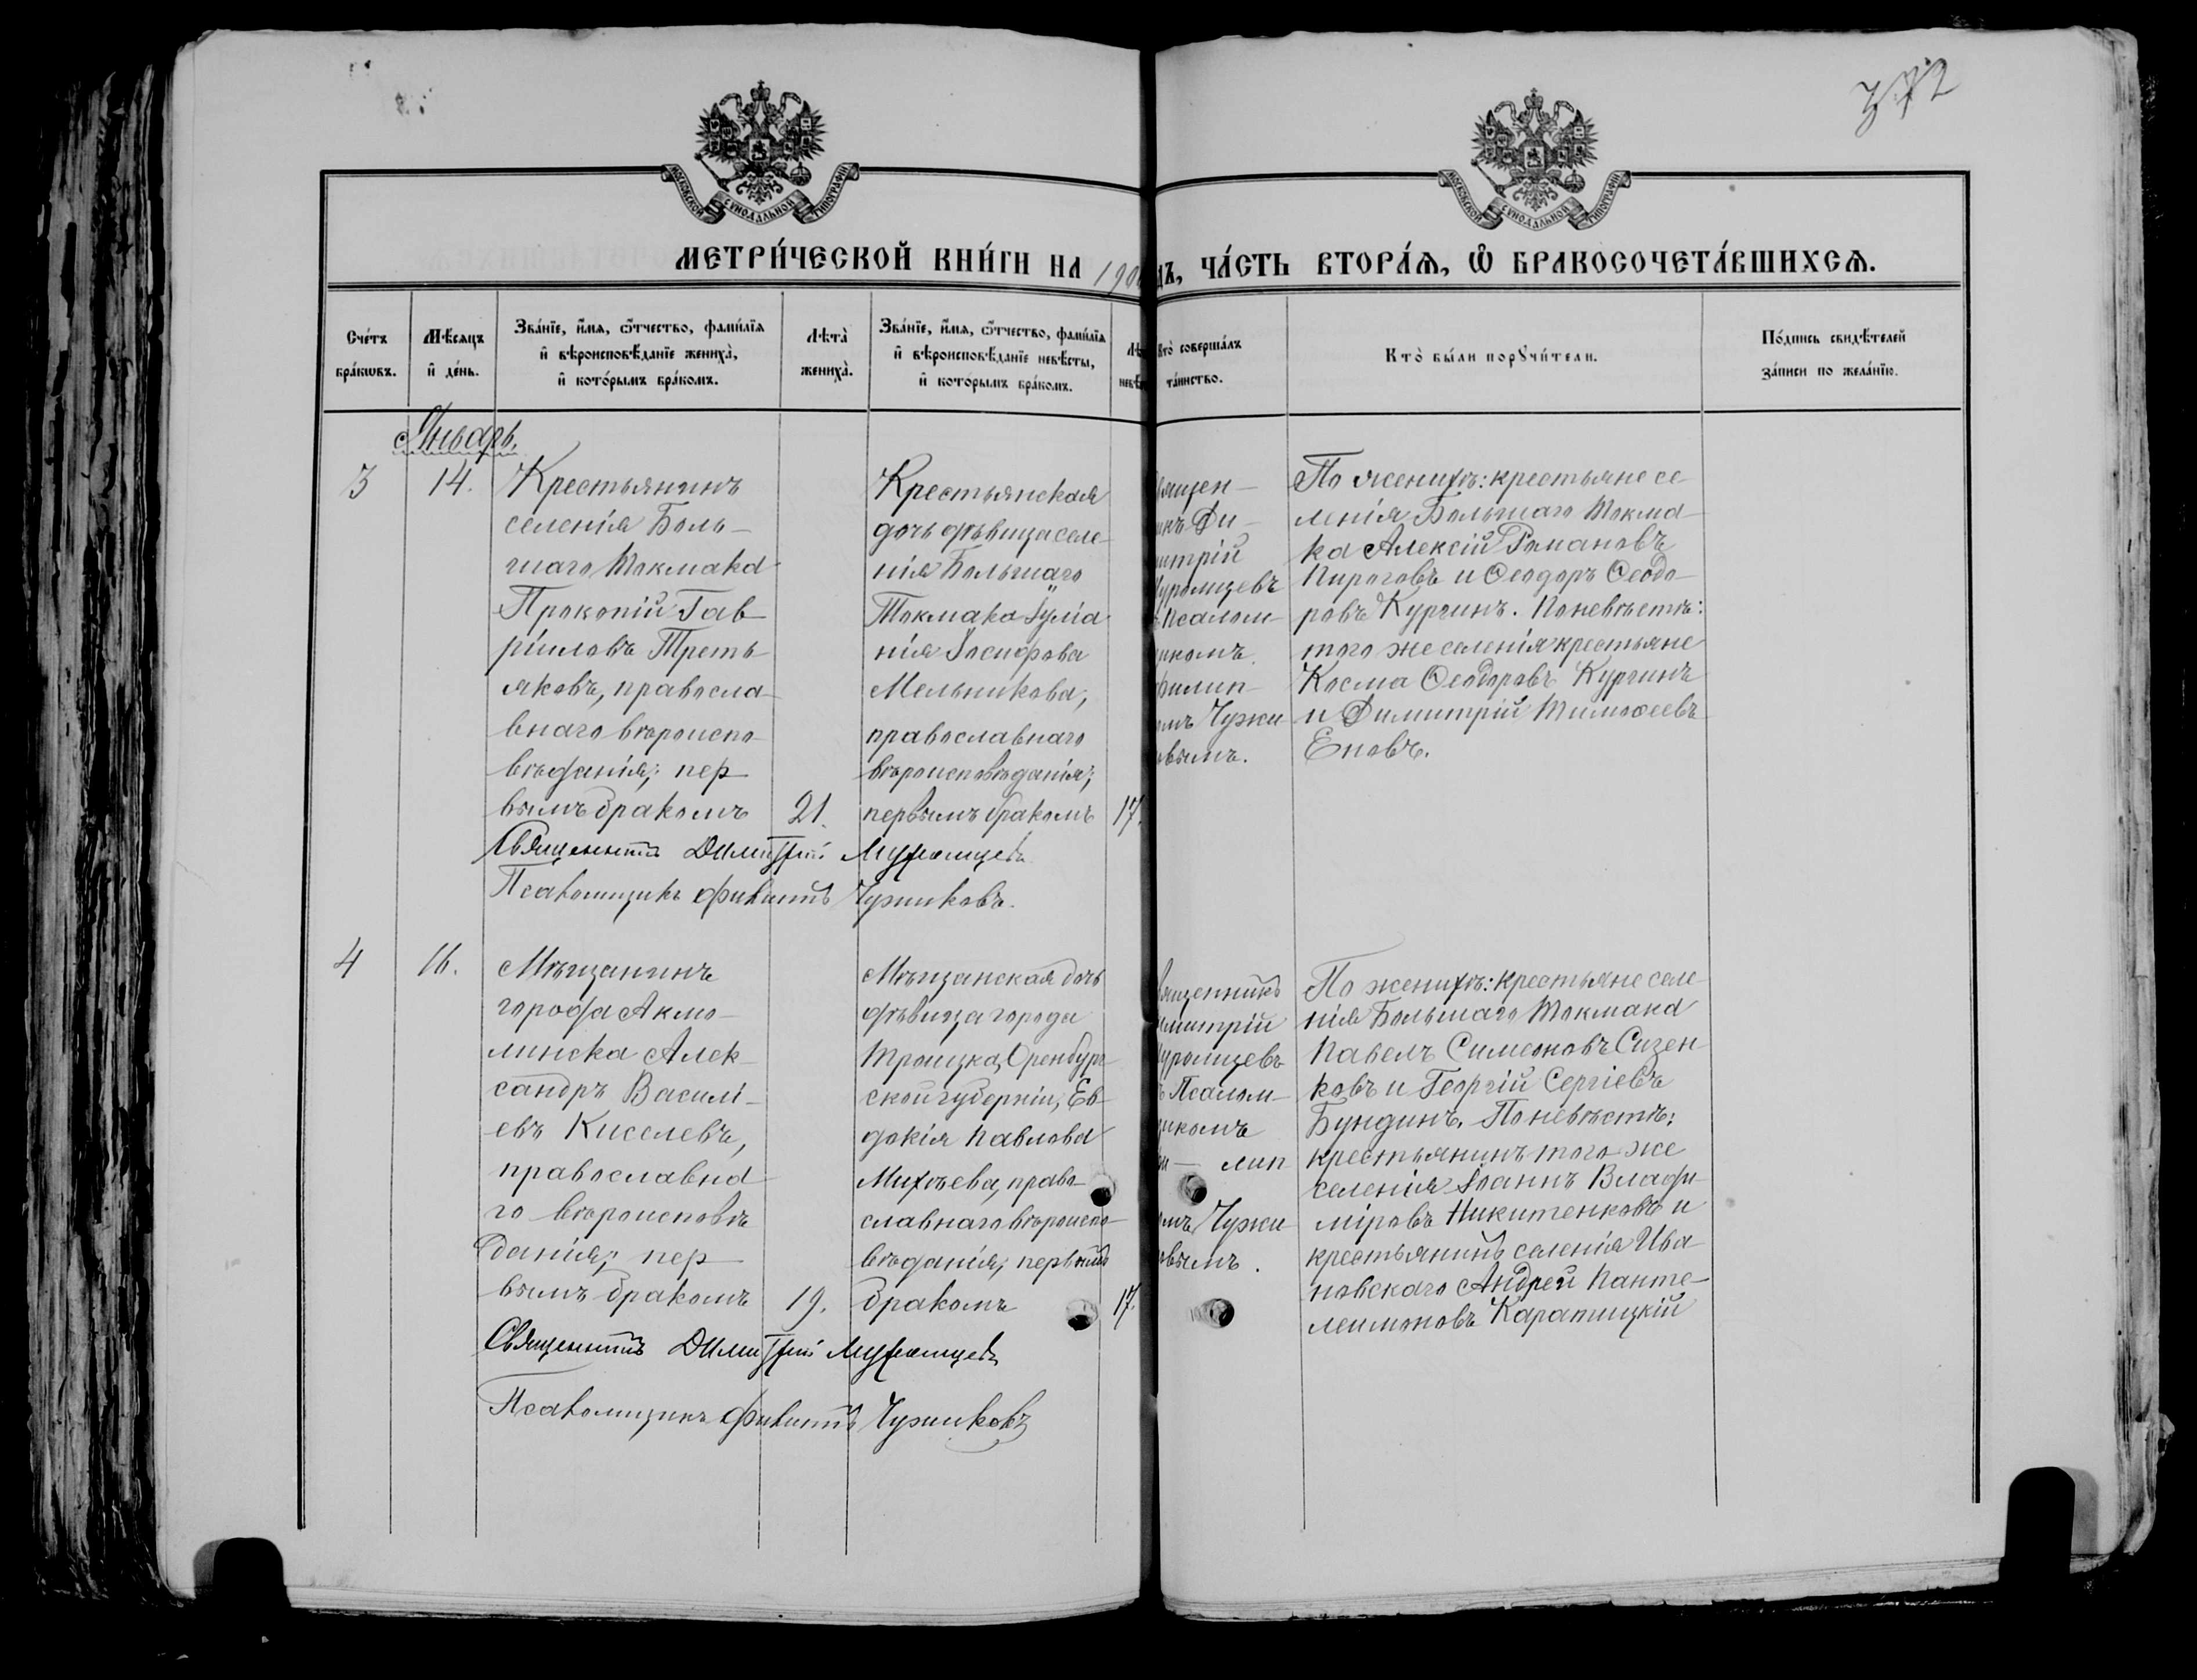 372
МОСКОВСКОЙ СѴНОДАЛЬНОЙ ТИПОГРАФІИ
МОСКОВСКОЙ СѴНОДАЛЬНОЙ ТИПОГРАФІИ
МЕТРИ́ЧЕСКОЙ КНИ́ГИ НА 190
ДЪ, ЧА́СТЬ ВТОРА́Ѧ, Ѽ БРАКОСОЧЕТА́ВШИХСѦ.
Сче́тъ
бра́кѡвъ.
Мѣ́сяцъ
и҆ де́нь.
Зва́нїе, и҆́мѧ, ѻ҆́тчество, фами́лїѧ
и҆ вѣроисповѣ́данїе жениха̀,
и҆ кото́рымъ бра́комъ.
Лѣта̀
жениха̀.
Зва́нїе, и҆́мѧ, ѻ҆́тчество, фами́лїѧ
и҆ вѣроисповѣ́данїе невѣ́сты,
и҆ кото́рымъ бра́комъ.
Кто̀ соверша́лъ
та́инство.
Кто̀ бы́ли порꙋчи́тели.
По́дпись свидѣ́телей
за́писи по жела́нїю.
Январь.
3
14.
Крестьянинъ
селенія Боль-
шаго Токмака
Прокопій Гав
ріиловъ Треть-
яковъ, правосла-
внаго вѣроиспо-
вѣданія; пер-
вымъ бракомъ
21.
Крестьянская
дочь дѣвица селе-
нія Большаго
Токмака Іуліа
нія Іосифова
Мельникова,
православнаго
вѣроисповѣданія;
первымъ бракомъ
17.
ящен-
икъ Ди-
митрій
уромцевъ
Псалом-
икомъ
филип-
омъ Чужи
овымъ.
По женихѣ: крестьяне се
ленія Большаго Токма-
ка Алексій Романовъ
Пироговъ и Ѳеодоръ Ѳеодо-
ровъ Кургинъ. По невѣстѣ:
того же селенія крестьяне
Косма Ѳеодоровъ Кургинъ
и Димитрій Тимоѳеевъ
Еповъ.
Священникъ Димитрій Муромцевъ
Псаломщикъ Филиппъ Чужиковъ.
4
16.
Мѣщанинъ
города Акмо-
линска Алек-
сандръ Василі-
евъ Киселевъ,
православна
го вѣроисповѣ
данія; пер-
вымъ бракомъ
19.
Мѣщанская дочь
дѣвица города
Троицка, Оренбург-
ской губерніи, Ев-
докія Павлова
Михѣева, право-
славнаго вѣроиспо-
вѣданія; первымъ
бракомъ
17.
ященникъ
имитрій
уромцевъ
Псалом-
икомъ
лип
омъ Чужи
овымъ.
По женихѣ: крестьяне селе-
нія Большаго Токмака
Павелъ Симеоновъ Сизен-
ковъ и Георгій Сергіевъ
Бундинъ. По невѣстѣ:
крестьянинъ того же
селенія Іоаннъ Влади-
міровъ Никитенковъ и
крестьянинъ селенія Ива-
новскаго Андрей Панте-
леимоновъ Карапицкій
Священникъ Димитрій Муромцевъ
Псаломщикъ Филиппъ Чужиковъ